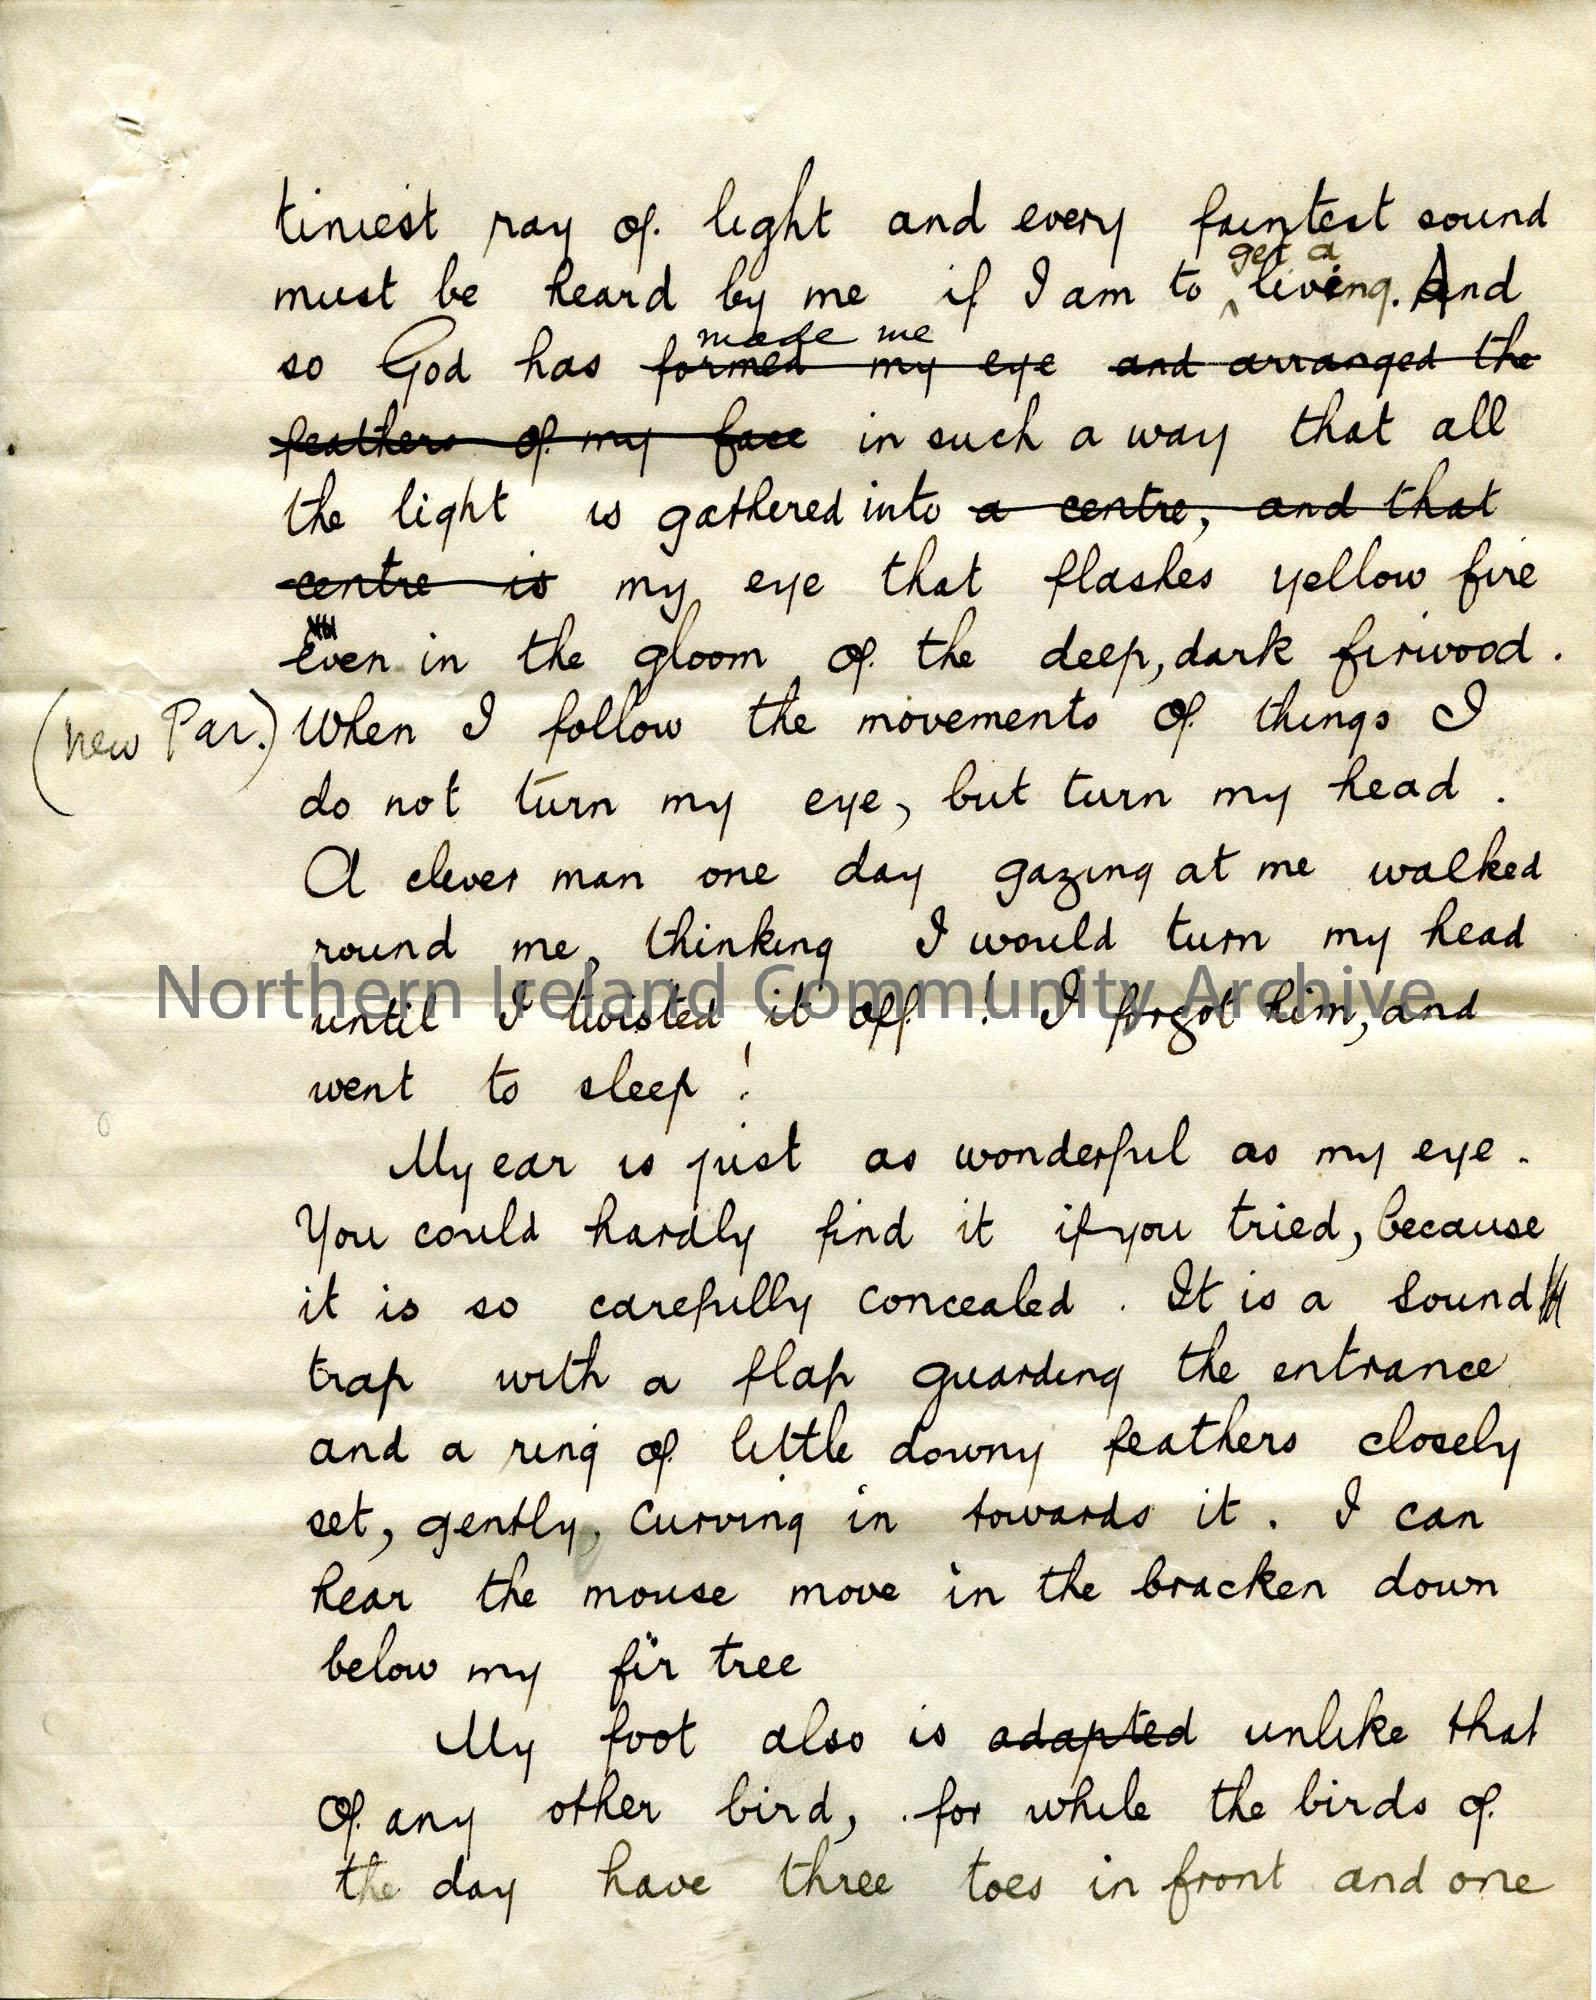 tiniest ray of light and every faintest sound
get a
must be heard by me if I am to living. And
made me
so God has formed my eye and arranged the
feathers of my face in such a way that all
the light is gathered into a centre, and that
centre is my eye that flashes yellow fire
even in the gloom of the deep, dark firwood.
(new Par.) When I follow the movements of things I
do not turn my eye, but turn my head.
A clever man one day gazing at me walked
round me, thinking I would turn my head
Northern Ireland Community Archive
until I twisted it off! I forgot him, and
went to sleep!
My ear is just as wonderful as my eye.
You could hardly find it if you tried, because
it is so carefully concealed. It is a sound
trap with a flap guarding the entrance
and a ring of little downy feathers closely
set, gently, curving in towards it. I can
hear the mouse move in the bracken down
below my fir tree
My foot also is adapted unlike that
of any other bird, for while the birds of
the day have three toes in front and one